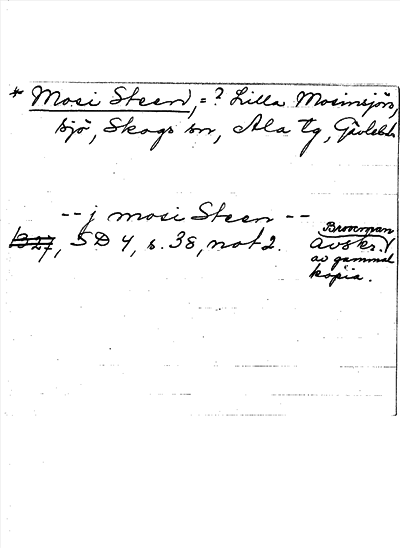 * Mosi Steen, =? Lilla Mosinsjön,
sjö, Skogs sn, Ala tg, Gävlebds
-- j mosi Steen --
1327, SD 4, s. 38, not 2.
Broocman
avskr.
av gammal
kopia.